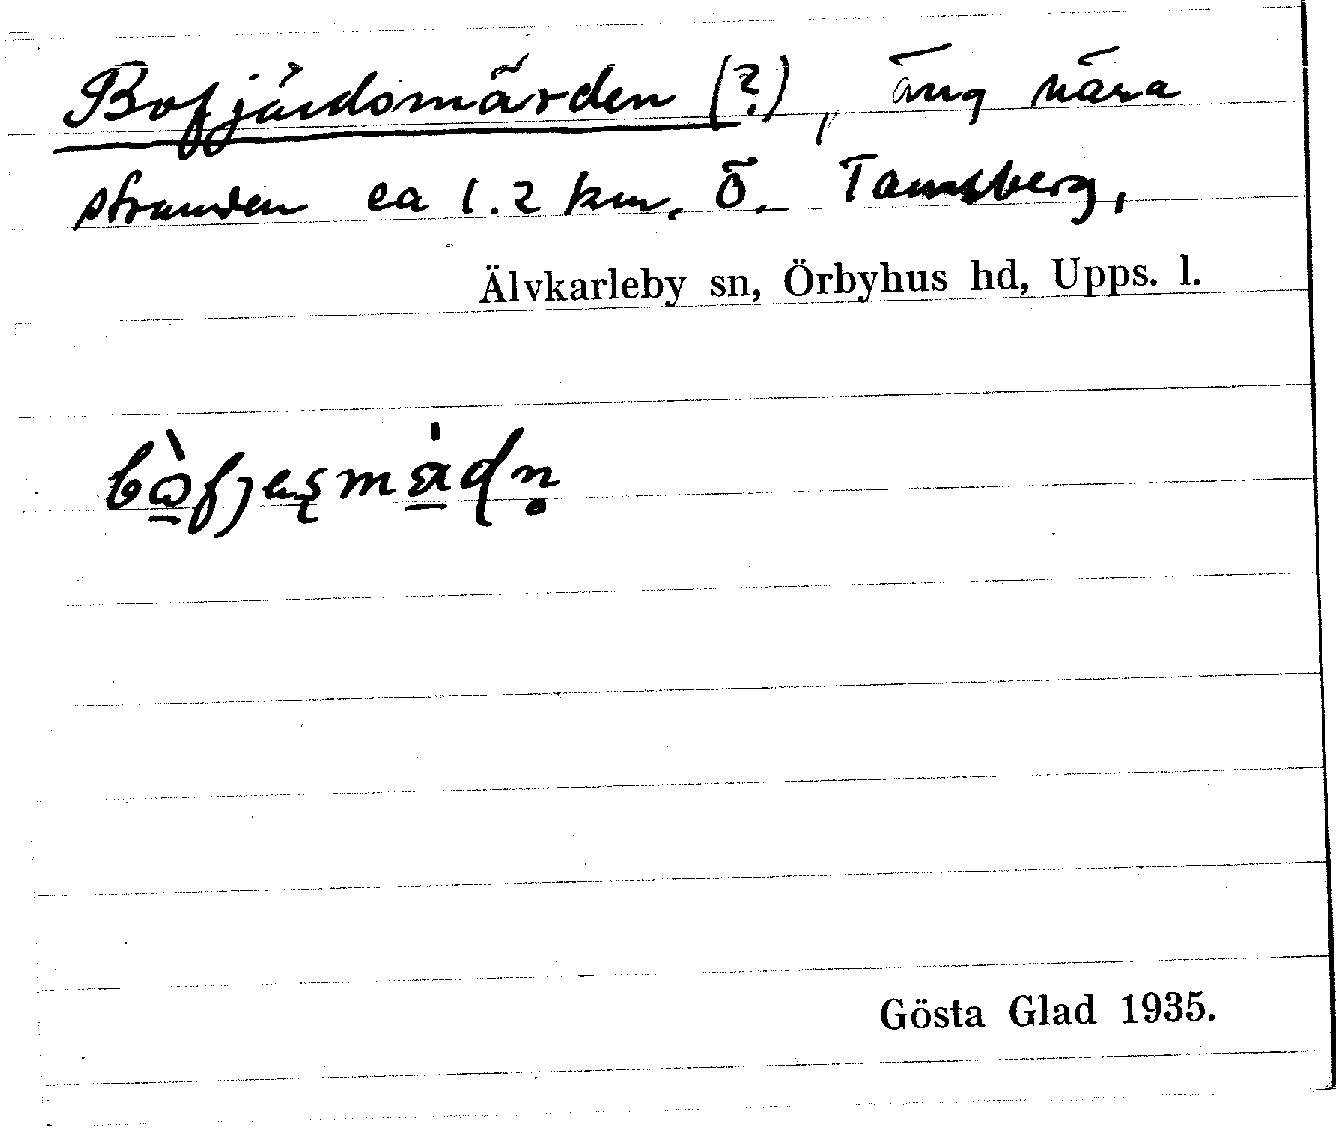 Bofjärdsmärden (?), äng nära
stranden ca 1.2 km. Ö. Tamsberg,
Älvkarleby sn, Örbyhus hd, Upps. l.
Gösta Glad 1935.